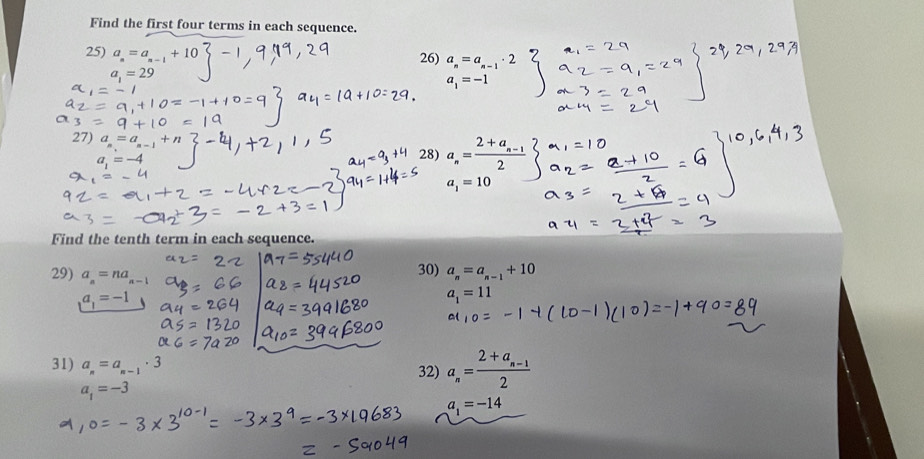 Find the first four terms in each sequence.
25) aₙ = aₙ₋₁ + 10 } -1, 9, 19, 29
a₁ = 29
a₁ = -1
a₂ = a₁+10 = -1+10 = 9 } a₄ = 19+10 = 29.
a₃ = 9+10 = 19
26) aₙ = aₙ₋₁ · 2 } a₁ = 29
a₁ = -1
a₂ = a₁ = 29
a₃ = 29
a₄ = 29
} 29, 29, 29, 29
27) aₙ = aₙ₋₁ + n } -4, +2, 1, 5
a₁ = -4
a₁ = -4
a₂ = a₁+2 = -4+2 = -2
a₃ = a₂+3 = -2+3 = 1
} a₄ = a₃+4
a₄ = 1+4 = 5
28) aₙ = (2 + aₙ₋₁)/2 } a₁ = 10
a₁ = 10
a₂ = (2+10)/2 = 6
a₃ = (2+6)/2 = 4
a₄ = (2+4)/2 = 3
} 10, 6, 4, 3
Find the tenth term in each sequence.
29) aₙ = naₙ₋₁
a₁ = -1
a₂ = 22
a₃ = 66
a₄ = 264
a₅ = 1320
a₆ = 7920
a₇ = 55440
a₈ = 44520
a₉ = 3991680
a₁₀ = 3996800
30) aₙ = aₙ₋₁ + 10
a₁ = 11
a₁₀ = -1+(10-1)(10) = -1+90 = 89
31) aₙ = aₙ₋₁ · 3
a₁ = -3
a₁₀ = -3×3¹⁰⁻¹ = -3×3⁹ = -3×19683
= -59049
32) aₙ = (2 + aₙ₋₁)/2
a₁ = -14